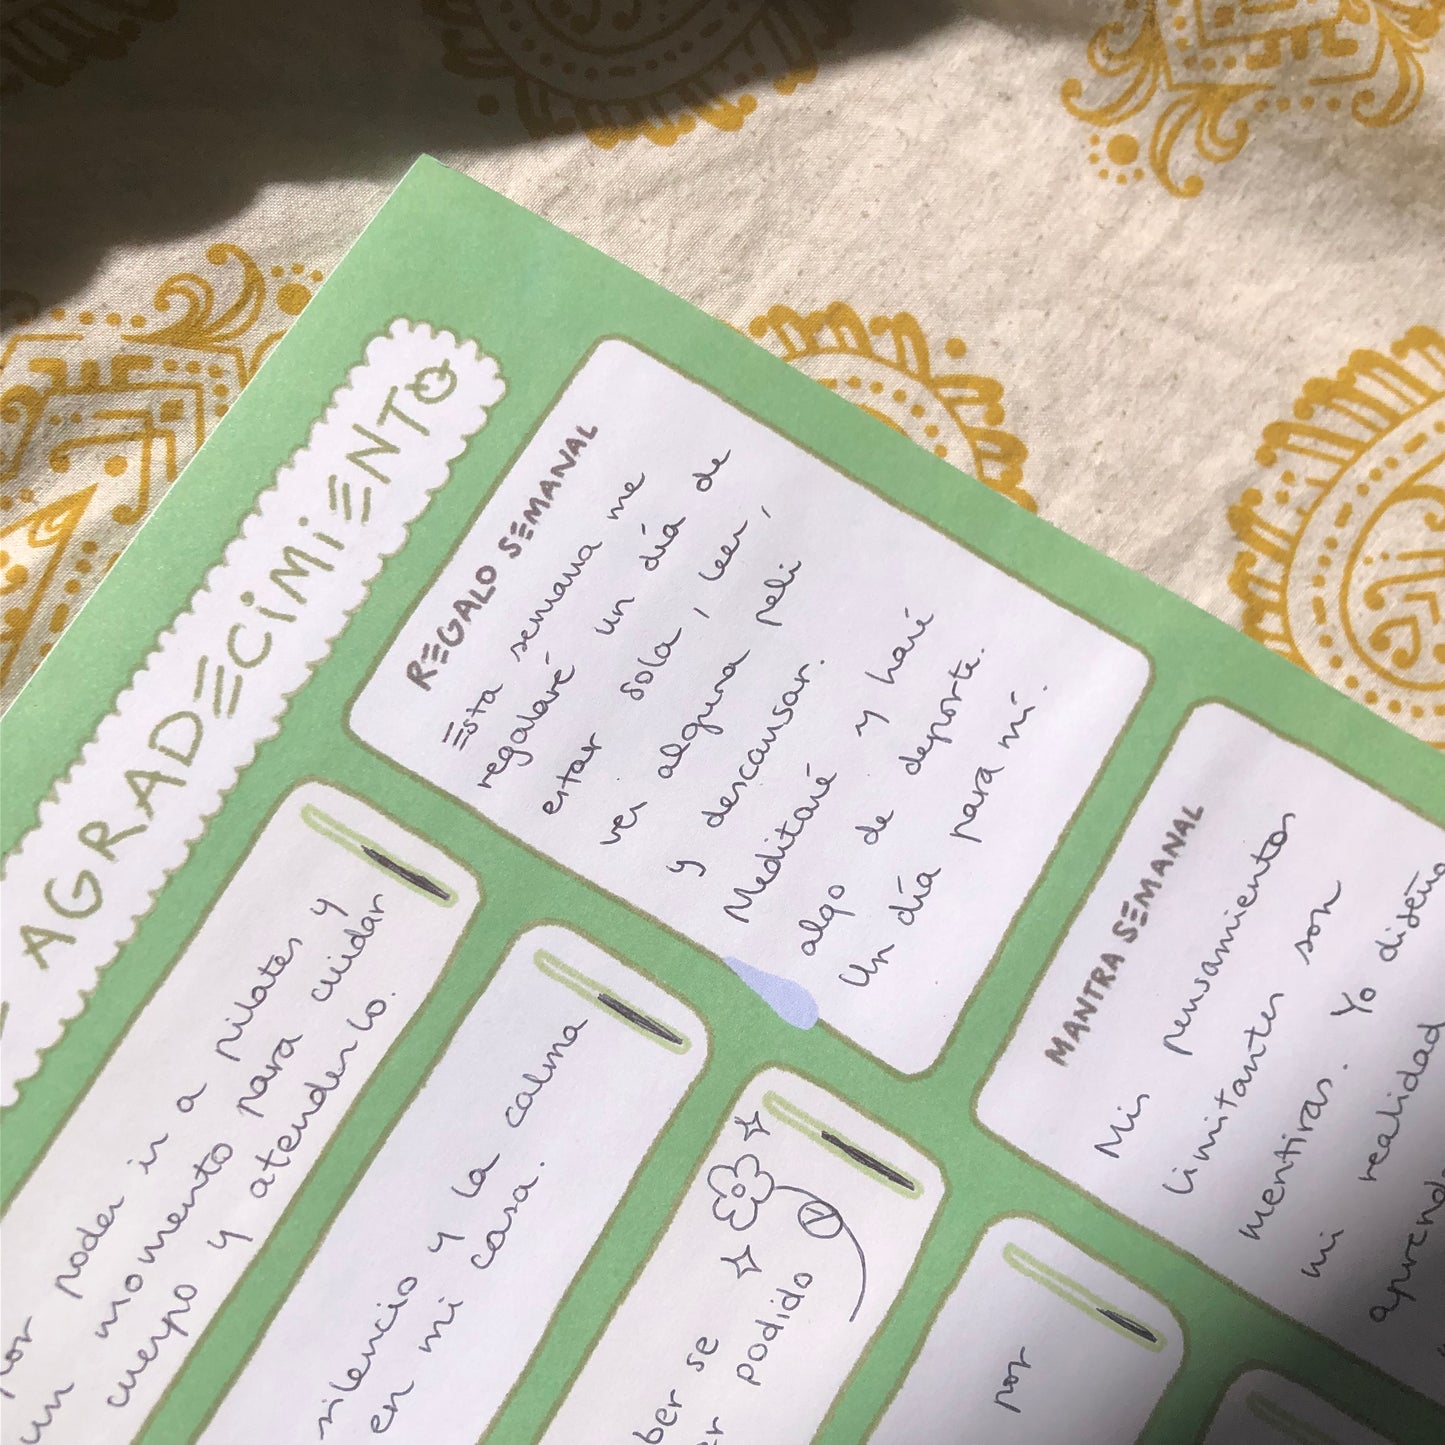 AGRADECIMIENTO
REGALO SEMANAL
Esta semana me
regalaré un día de
estar sola, leer,
ver alguna peli
y descansar.
Meditaré y haré
algo de deporte.
Un día para mí.
MANTRA SEMANAL
Mis pensamientos
limitantes son
mentiras. Yo diseño
mi realidad
por poder ir a pilates y
un momento para cuidar
cuerpo y atenderlo.
silencio y la calma
en mi casa.
ber se
er podido
por